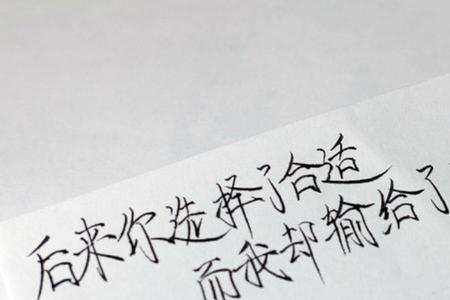 后来你选择了合适
而我却输给了